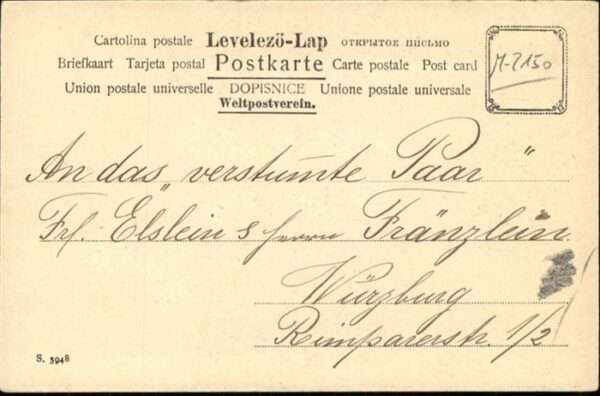 Cartolina postale Levelezö-Lap ОТКРЫТОЕ ПИСЬМО
Briefkaart Tarjeta postal Postkarte Carte postale Post card
Union postale universelle DOPISNICE Unione postale universale
Weltpostverein.
M-2150
An das „verstum̅te Paar“
Frl. Elslein & Herrn Fränzlein
Würzburg
Reimparerstr. 1/2
S. 3948